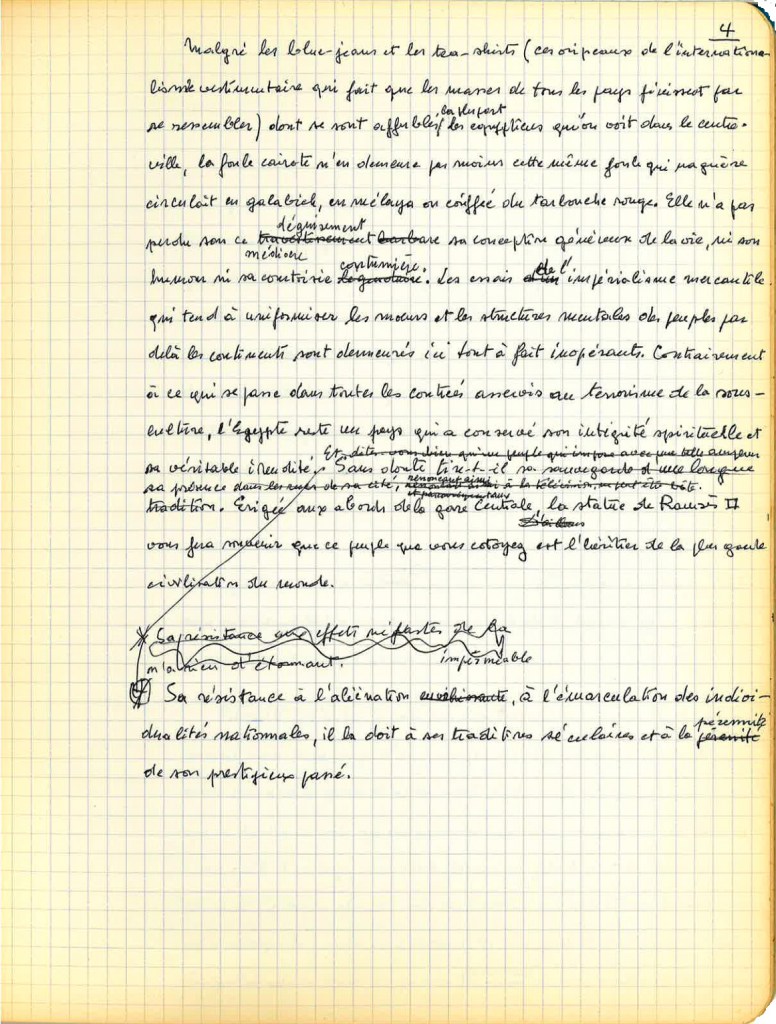 4
Malgré les blue-jeans et les tea-shirts (ces oripeaux de l'internationa-
lisme vestimentaire qui fait que les masses de tous les pays finissent par
la plupart
se ressembler) dont se sont affublés les égyptiens qu'on voit dans le centre-
ville, la foule cairote n'en demeure pas moins cette même foule qui naguère
circulait en galabieh, en mélaya ou coiffée du tarbouche rouge. Elle n'a pas
déguisement
perdu son ce travestissement barbare sa conception généreuse de la vie, ni son
médiocre
coutumière.
humour ni sa courtoisie légendaire. Les essais d'un de l'impérialisme mercantile
qui tend à uniformiser les mœurs et les structures mentales des peuples par
delà les continents sont demeurés ici tout à fait inopérants. Contrairement
à ce qui se passe dans toutes les contrées asservis au terrorisme de la sous-
culture, l'Egypte reste un pays qui a conservé son intégrité spirituelle et
Et dites-vous bien qu'un peuple qui impose avec une telle
sa véritable identité. Sans doute tire-t-il sa sauvegarde d'une longue
sa présence dans les rues de sa cité, renonçant ainsi à la télévision, ne peut être bête.
tradition. Erigée aux abords de la gare Centrale, la statue de Ramsès II
D'ailleurs
vous fera souvenir que ce peuple que vous cotoyez est l'héritier de la plus grande
civilisation du monde.
* Sa résistance aux effets néfastes de la
n'a rien d'étonnant.
imperméable
Sa résistance à l'aliénation envahissante, à l'émasculation des indivi-
pérennité
dualités nationales, il la doit à ses traditions séculaires et à la
de son prestigieux passé.